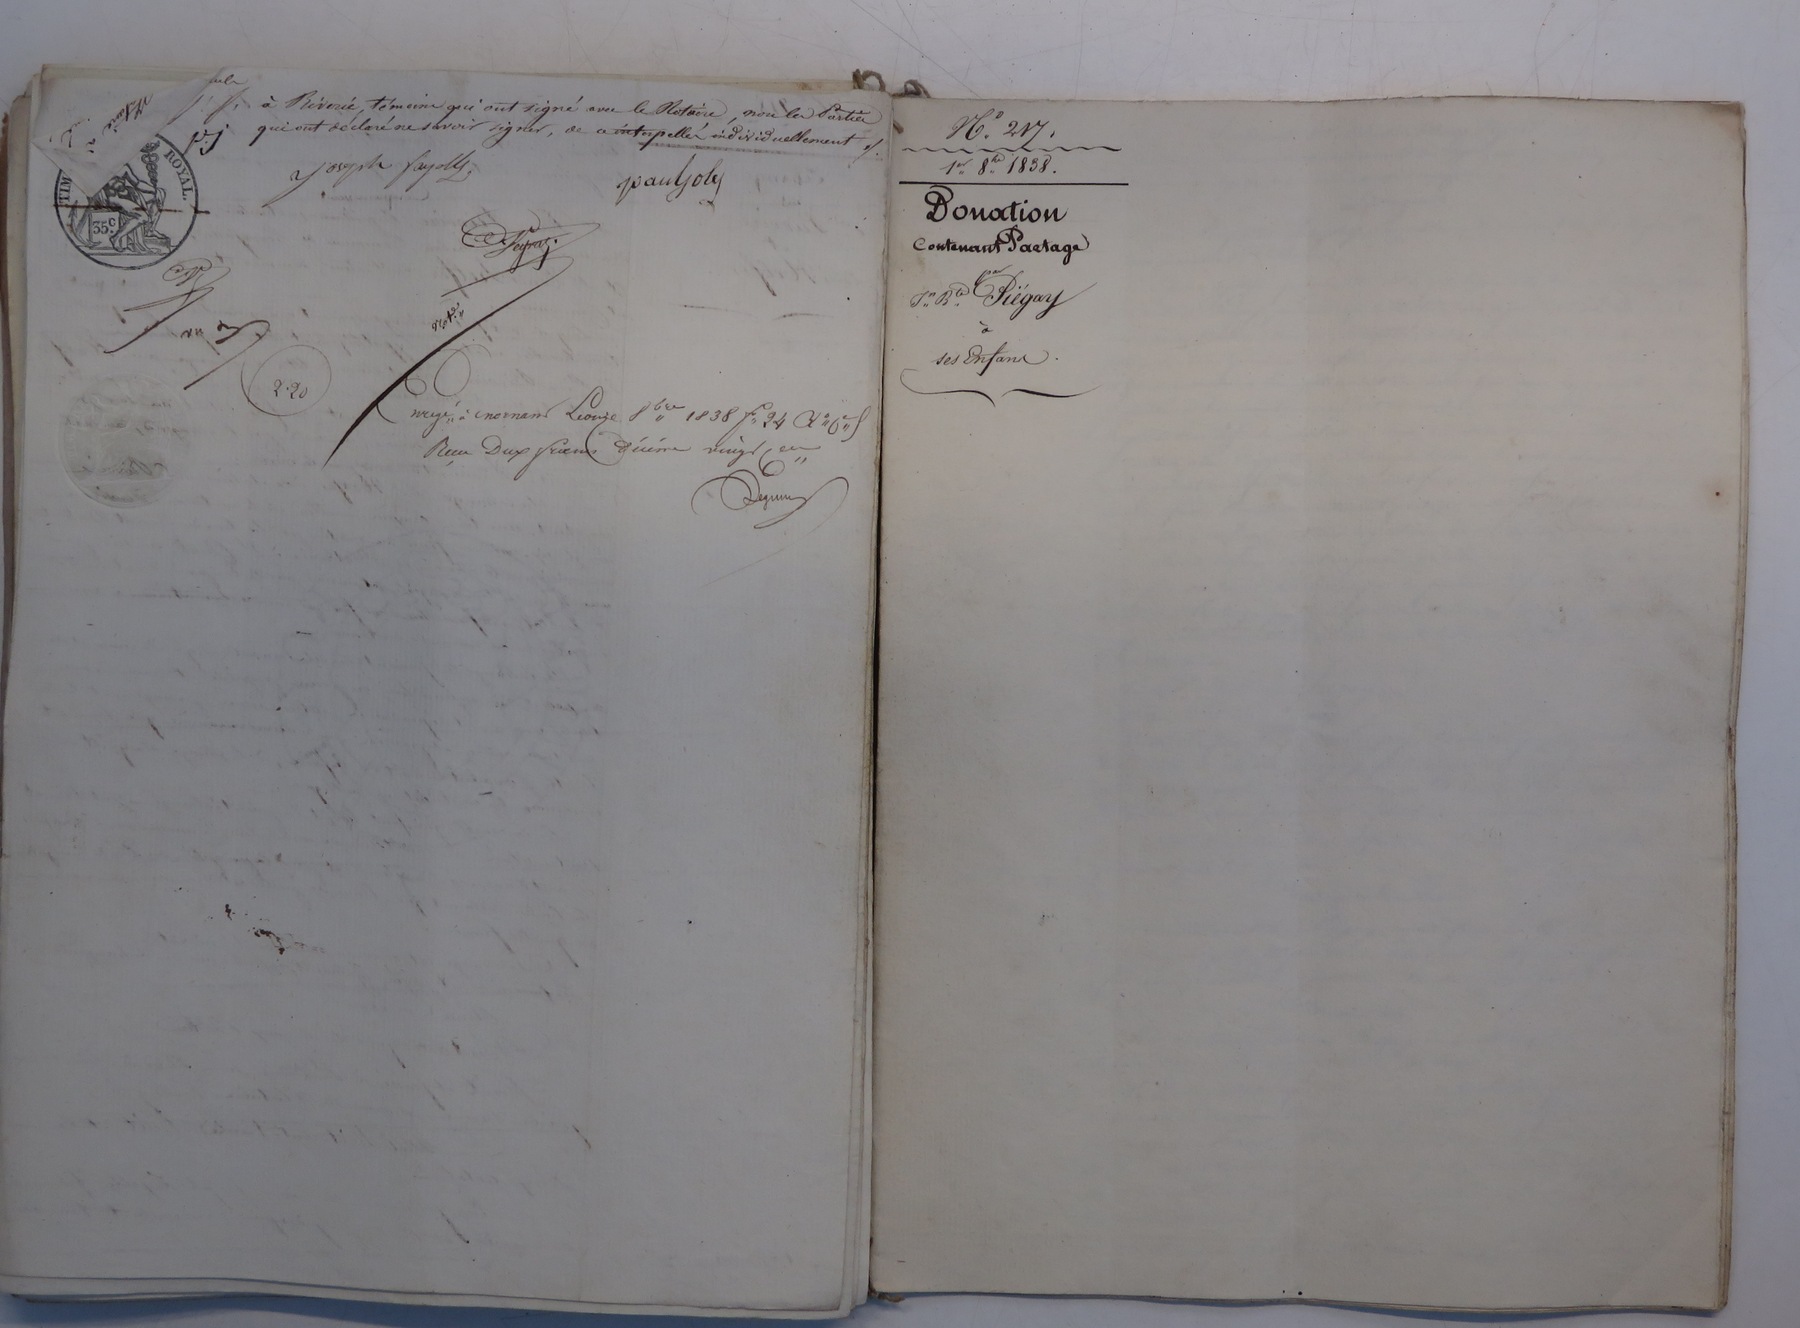 à Riverie, témoins qui ont signé avec le Notaire, non les Parties
qui ont déclaré ne savoir signer, de ce interpellés individuellement ./.
joseph fayolle
paul joly
TIMBRE ROYAL.
35 c.
Peyraz.
Not.re
2·20
à mornant Le onze 8bre 1838 f° 24
Reçu Deux francs décime vingt cent
N.° 217.
1er 8bre 1838.
Donation
contenant Partage
par
Jn Bte Piégay
à
ses Enfans.